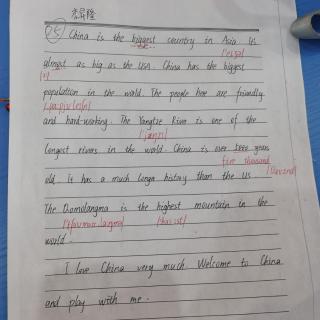 95 China is the biggest country in Asia. It's
almost as big as the USA. China has the biggest
population in the world. The people here are friendly
and hard-working. The Yangtze River is one of the
longest rivers in the world. China is over 5000 years
five thousand
old. It has a much longer history than the US.
The Qomolangma is the highest mountain in the
world.
I love China very much. Welcome to China
and play with me.